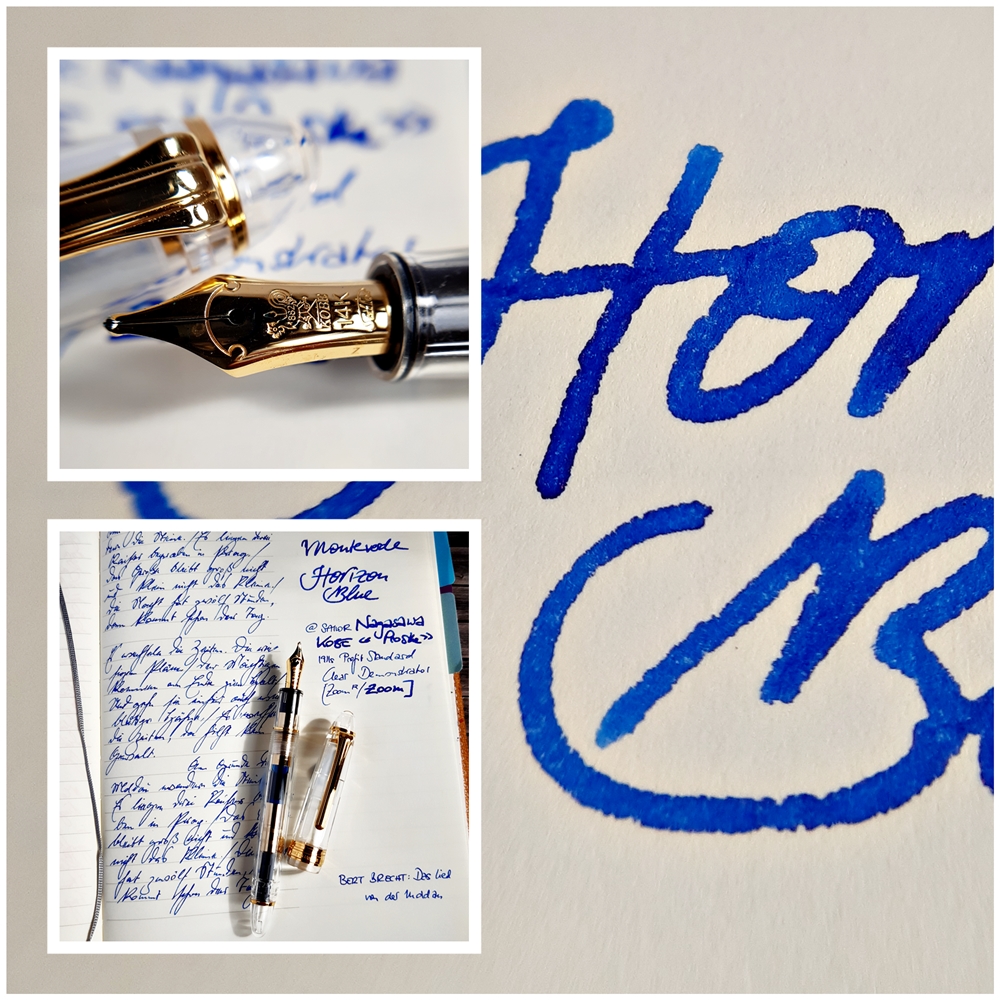 Hor
B
KOBE
14K
dern die Steine. Es liegen drei
Kaiser begraben in Prag.
Das Große bleibt groß nicht
und klein nicht das Kleine.
Die Nacht hat zwölf Stunden,
dann kommt schon der Tag.
Es wechseln die Zeiten. Die rie-
sigen Pläne der Mächtigen
kommen am Ende zum Halt.
Und gehn sie einher auch wie
blutige Hähne. Es wechseln
die Zeiten, da hilft kein
Gewalt.
Am Grunde der
Moldau wandern die Steine
Es liegen drei Kaiser
ben in Prag. Das
bleibt groß nicht und
nicht das Kleine. Die
hat zwölf Stunden,
kommt schon der Tag
Monteverde
Horizon
Blue
@ SAILOR Nagasawa
KOBE « Proske»
1911s Profit Standard
Clear Demonstrator
[Zoom / Zoom]
BERT BRECHT: Das Lied
von der Moldau